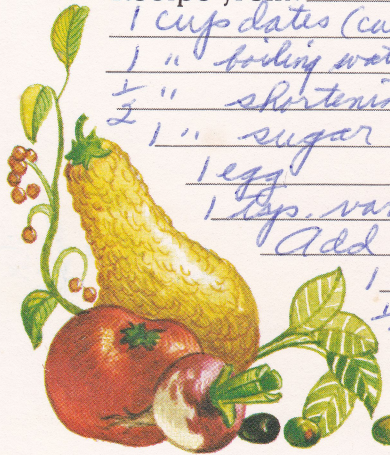 1 cup dates (ca
1 " boiling wat
1/2 " shorteni
1 " sugar
1 egg
1 tsp. va
Add
1